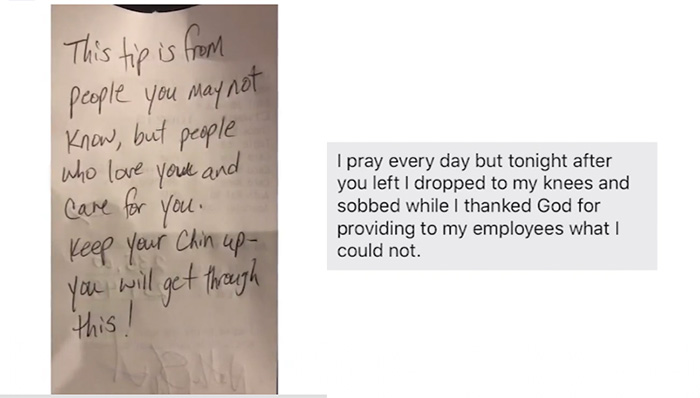 This tip is from
people you may not
know, but people
who love you and
care for you.
Keep your chin up-
you will get through
this!
I pray every day but tonight after
you left I dropped to my knees and
sobbed while I thanked God for
providing to my employees what I
could not.